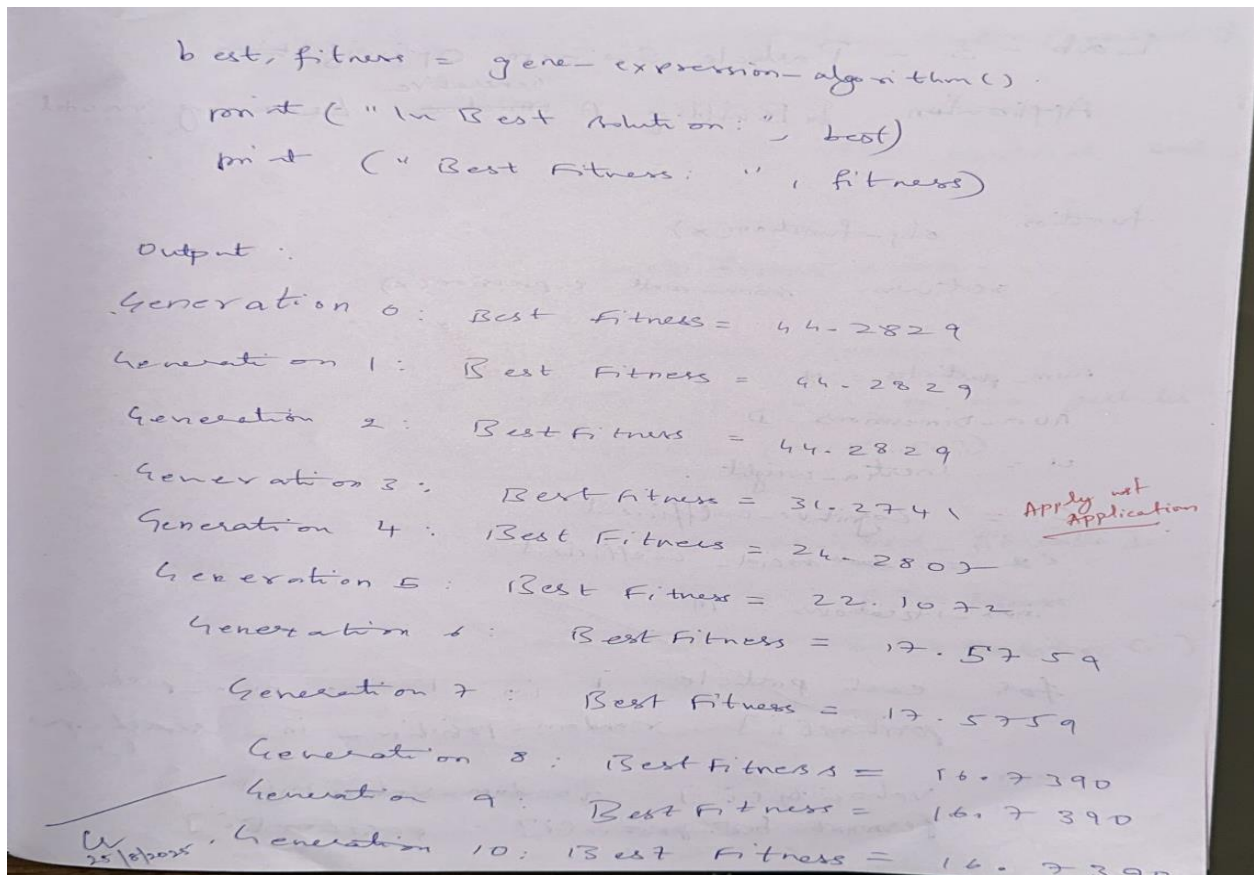 best, fitness = gene-expression-algorithm()
print ("\n Best solution:", best)
print (" Best Fitness: ", fitness)
Output :
Generation 0: Best Fitness = 44.2829
Generation 1: Best Fitness = 44.2829
Generation 2: Best Fitness = 44.2829
Generation 3: Best Fitness = 31.2741
Apply
Application
Generation 4: Best Fitness = 24.2807
Generation 5: Best Fitness = 22.1072
Generation 6: Best Fitness = 17.5759
Generation 7: Best Fitness = 17.5759
Generation 8: Best Fitness = 16.7390
Generation 9: Best Fitness = 16.7390
Generation 10: Best Fitness = 16.7390
25/8/2025